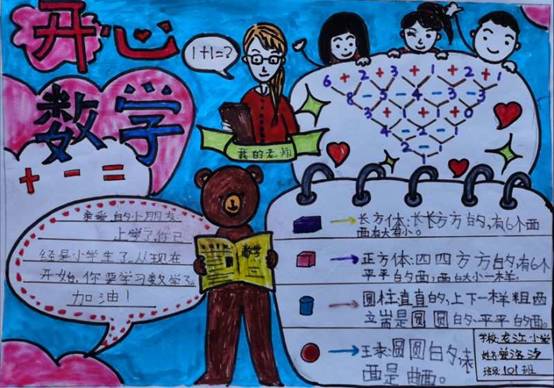 开心
数学
+ - =
1+1=?
我的老师
6+2+3+1+2+1
亲爱的小朋友
上学了,你已
经是小学生了,从现在
开始,你要学习数学了
加油!
数学
长方体:长长方方的,有6个面
面有大有小。
正方体:四四方方的,有6个
平平的面,面的大小一样。
圆柱:直直的,上下一样粗,两
立端是圆圆的,平平的面。
球:圆圆的,表
面是曲面。
学校:小学
姓名:
班级:101班